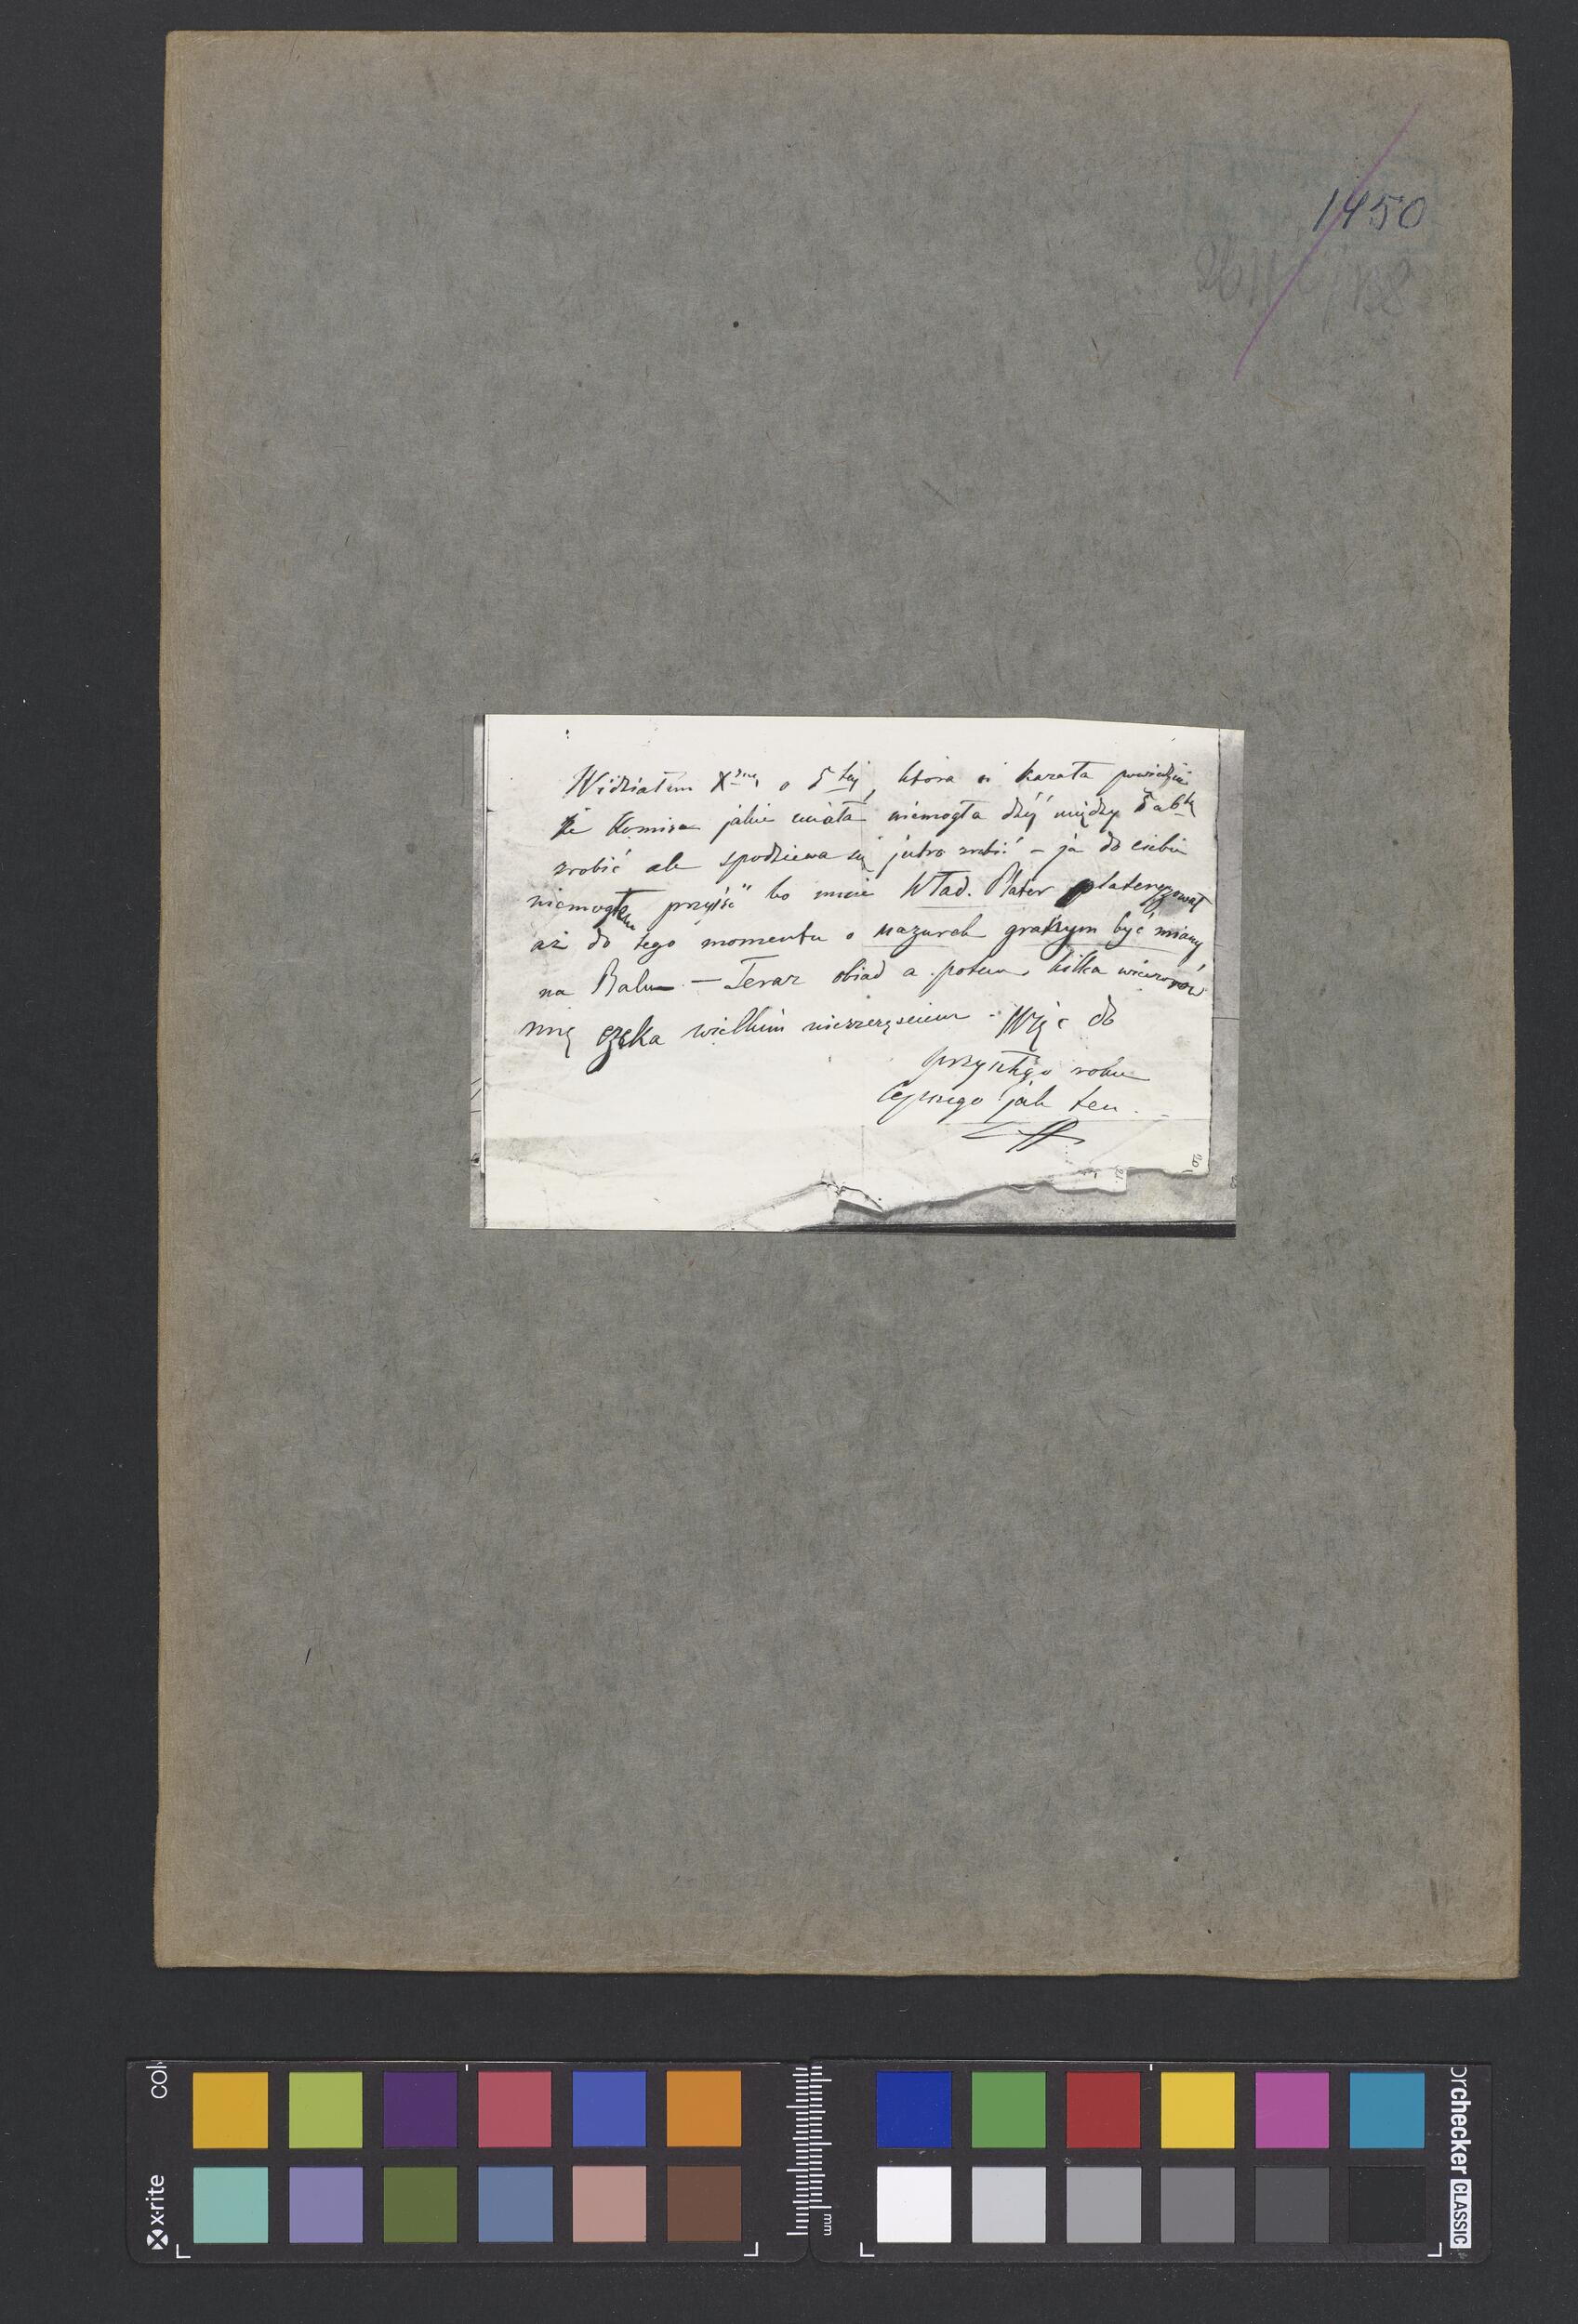 1450
Widziałem X^żnę o 5^tej, która ci kazała powiedzieć
że Komisa jakie miała niemogła dziś między 5 a 6^tą
zrobić ale spodziewa się jutro zrobić – ja do ciebie
niemogłem przyjść bo mnie Wład. Plater plateryzował
aż do tego momentu o mazurek grać być miany
na Balu – Teraz obiad a potem kilka wieczorów
mię czeka wielkim nieszczęściem – Więc do
przyszłego roku
lepszego jak ten.
x-rite
mm
checker CLASSIC